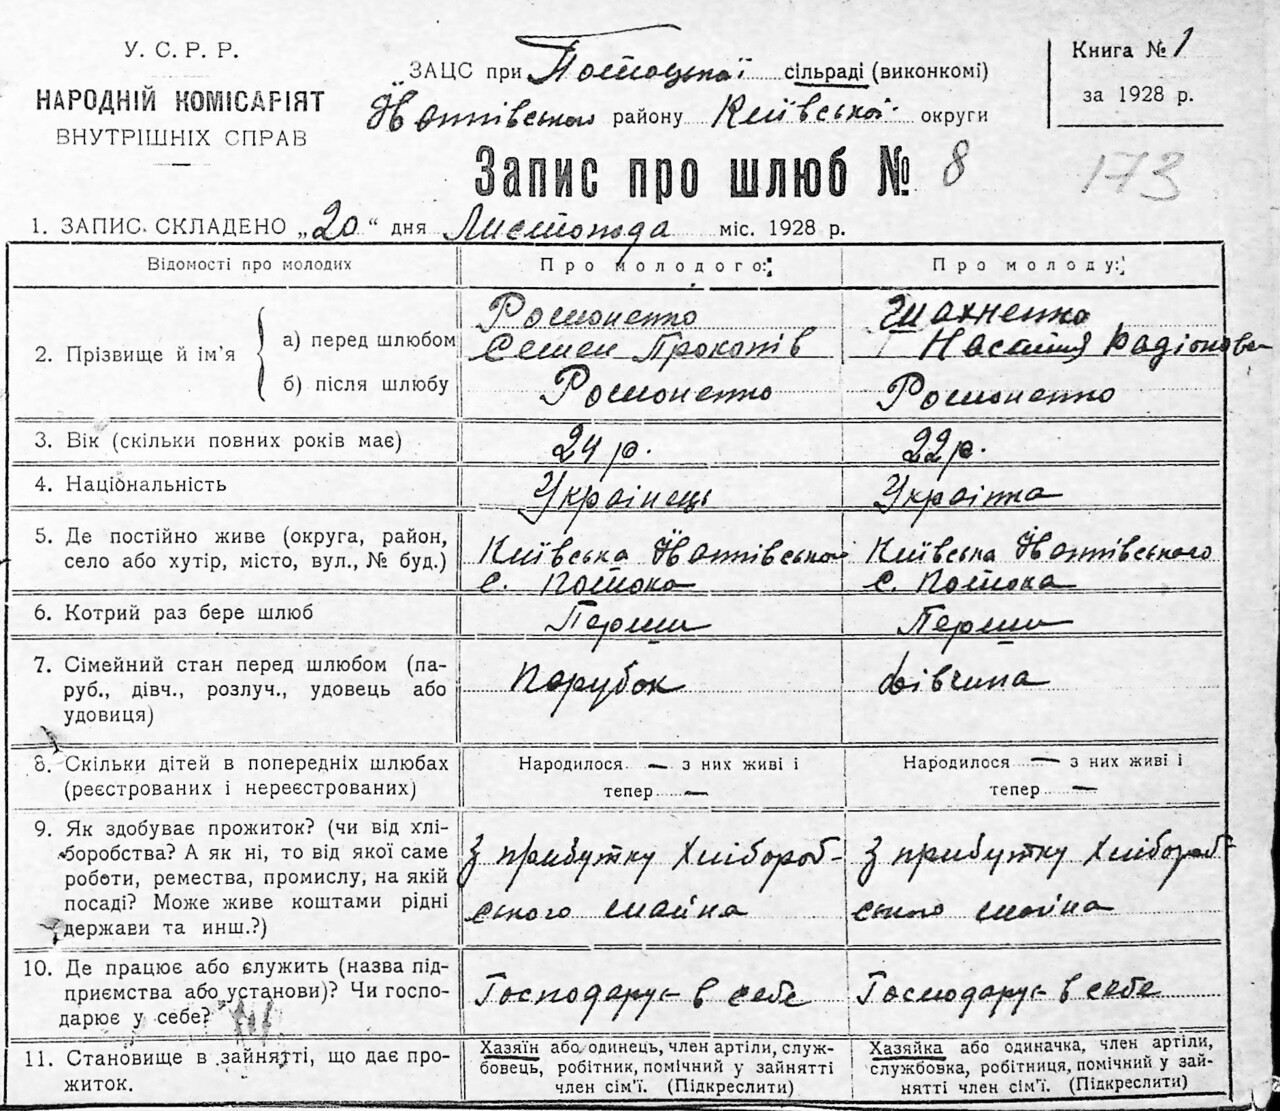 У. С. Р. Р.
НАРОДНІЙ КОМІСАРІЯТ
ВНУТРІШНІХ СПРАВ
ЗАЦС при Потоцької сільраді (виконкомі)
району Київської округи
Книга № 1
за 1928 р.
Запис про шлюб № 8
173
1. ЗАПИС СКЛАДЕНО „20“ дня Листопада міс. 1928 р.
Відомості про молодих
Про молодого:
Про молоду:
2. Прізвище й ім'я
а) перед шлюбом
Романенко
Семен Прокопів
Настия Радіонова
б) після шлюбу
Романенко
Романенко
3. Вік (скільки повних років має)
24 р.
22 р.
4. Національність
Українець
Украінка
5. Де постійно живе (округа, район,
село або хутір, місто, вул., № буд.)
Київська
с. Потока
Київська
с. Потока
6. Котрий раз бере шлюб
Перши
Перши
7. Сімейний стан перед шлюбом (па-
руб., дівч., розлуч., удовець або
удовиця)
Парубок
дівчина
8. Скільки дітей в попередніх шлюбах
(реєстрованих і нереєстрованих)
Народилося — з них живі і
тепер —
Народилося — з них живі і
тепер —
9. Як здобуває прожиток? (чи від хлі-
боробства? А як ні, то від якої саме
роботи, ремества, промислу, на якій
посаді? Може живе коштами рідні
держави та инш.?)
З прибутку Хлібороб-
ського майна
З прибутку Хлібороб-
ського майна
10. Де працює або служить (назва під-
приємства або установи)? Чи госпо-
дарює у себе?
Господарує в себе
Господарує в себе
11. Становище в зайнятті, що дає про-
житок.
Хазяїн або одинець, член артілі, служ-
бовець, робітник, помічний у зайнятті
член сім'ї. (Підкреслити)
Хазяйка або одиначка, член артілі,
службовка, робітниця, помічний у зай-
нятті член сім'ї. (Підкреслити)